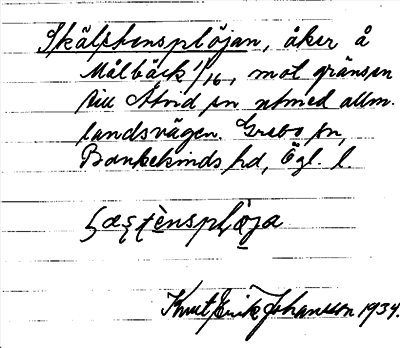 Skälstensplöjan, åker å
Målbäck 1/16, mot gränsen
till Åtvid sn utmed allm.
landsvägen. Grebo sn,
Bankekinds hd, Ögl. l.
Knut Erik Johansson 1934.